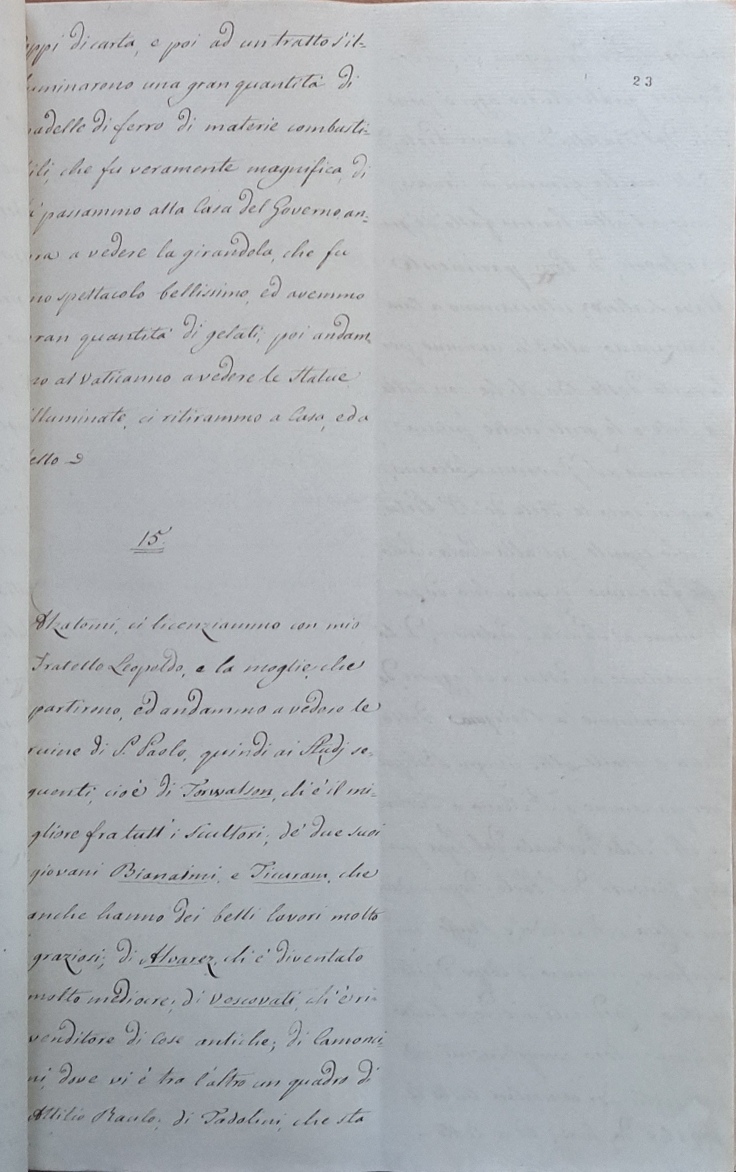 23
ppi di carta, e poi ad un tratto s'il-
luminarono una gran quantità di
padelle di ferro di materie combusti-
ili, che fu veramente magnifica, di
lì passammo alla Casa del Governo, an-
ra a vedere la girandola, che fu
no spettacolo bellissimo, ed avemmo
ran quantità di gelati, poi andam
no al Vaticanno a vedere le statue
illuminate, ci ritirammo a Casa, ed a
etto
15
Alzatomi, ci licenziammo con mio
Fratello Leopoldo, e la moglie, che
partirono, ed andammo a vedere le
ruine di S. Paolo, quindi ai Studj se-
guenti, cioè di Torwalson, ch'è il mi-
gliore fra tutt'i Scultori; de' due suoi
giovani Bianaimi, e, che
anche hanno dei belli lavori molto
graziosi; di Alvarez, ch'è diventato
molto mediocre; di Vescovati, ch'è ri-
venditore di cose antiche; di Camonci-
ni, dove vi è tra l'altro un quadro di
Attilio; di Tadolini, che sta